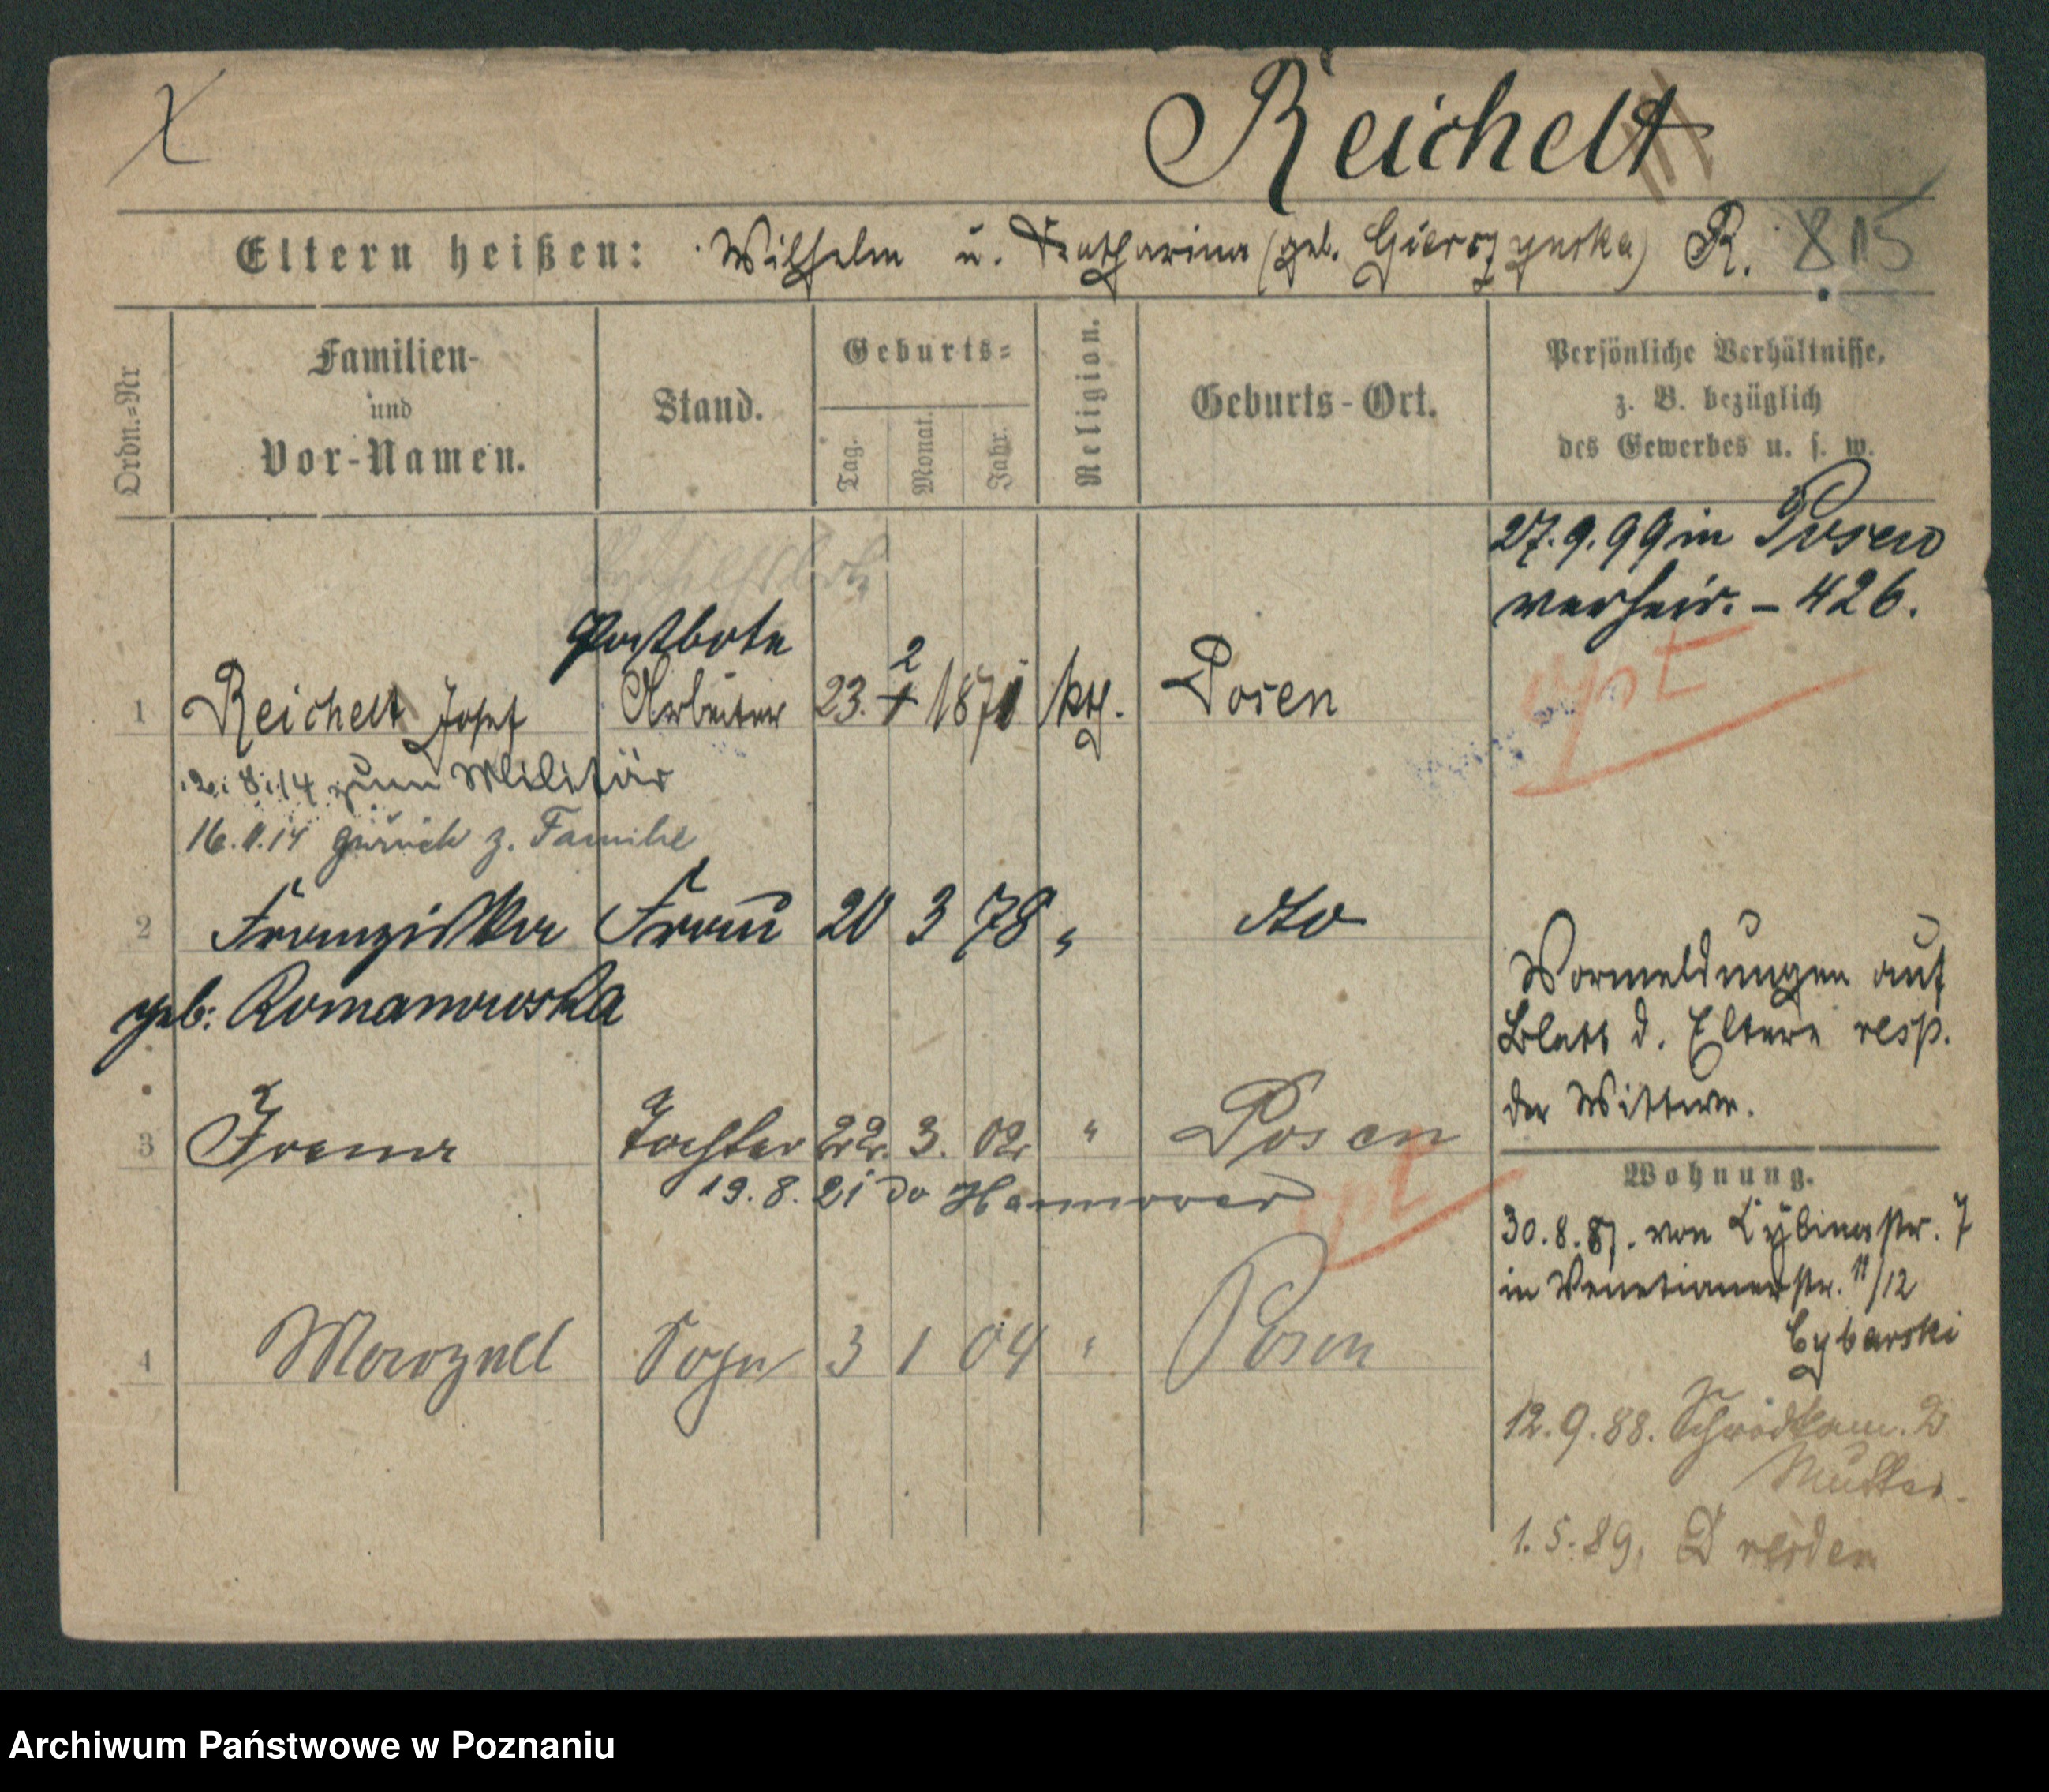 Reichelt
Eltern heißen: Wilhelm u. Katharina (geb. Gierczynska) R. 815
Ordn.=Nr
Familien-
und
Vor-Namen.
Stand.
Geburts=
Tag.
Monat.
Jahr.
Religion.
Geburts-Ort.
Persönliche Verhältnisse,
z. B. bezüglich
des Gewerbes u. s. w.
27.9.99 in Posen
verheir. - 426.
Postbote
2
1 Reichelt Josef Arbeiter 23. 1871 kth. Posen
2.8.14 zum Militär
16.11.14 zurück z. Familie
2 Franziska Frau 20 3 78 " dto
geb: Romanowska
Vormeldungen auf
Blatt d. Eltern resp.
der Wittwe.
3 Irena Tochter 22. 3. 02 " Posen
19.8.21 do Hannover
Wohnung.
30.8.87. von Cybinastr. 7
in Venetianerstr. 11/12
Cybarski
4 Sohn 3 1 04 " Posen
12.9.88.
Mutter.
1.5.89. Dresden
Archiwum Państwowe w Poznaniu